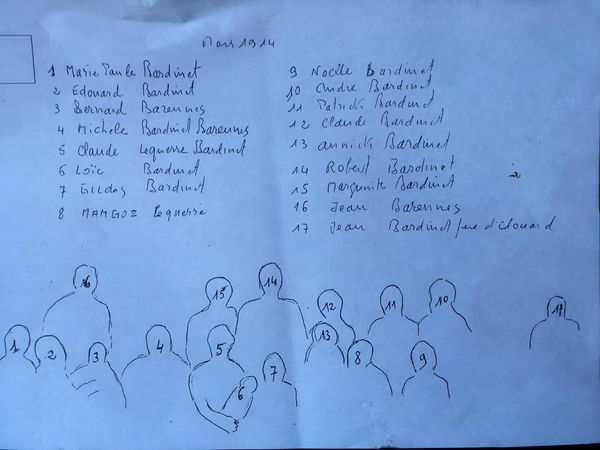 Mars 1914
1 Marie Paule Bardinet
2 Edouard Bardinet
3 Bernard Barennes
4 Michèle Bardinet Barennes
5 Claude Lequerre Bardinet
6 Loïc Bardinet
7 GILDAS Bardinet
8 MAMGOZ Lequerre
9 Noëlle Bardinet
10 André Bardinet
11 Patrick Bardinet
12 Claude Bardinet
13 annick Bardinet
14 Robert Bardinet
15 Marguerite Bardinet
16 Jean Barennes
17 Jean Bardinet père d'édouard
16
15
14
12
11
10
17
1
2
3
4
5
13
8
9
6
7